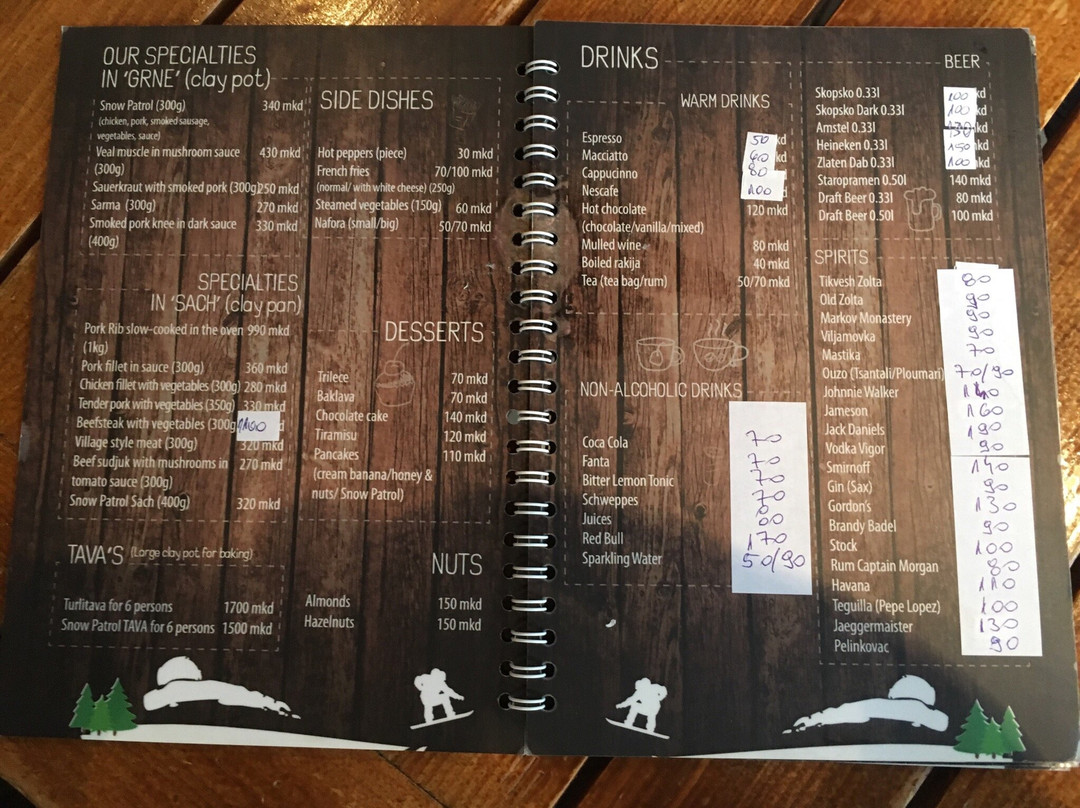 OUR SPECIALTIES
IN 'GRNE' (clay pot)
Snow Patrol (300g) 340 mkd
(chicken, pork, smoked sausage,
vegetables, sauce)
Veal muscle in mushroom sauce 430 mkd
(300g)
Sauerkraut with smoked pork (300g) 250 mkd
Sarma (300g) 270 mkd
Smoked pork knee in dark sauce 330 mkd
(400g)
SPECIALTIES
IN 'SACH' (clay pan)
Pork Rib slow-cooked in the oven 990 mkd
(1kg)
Pork fillet in sauce (300g) 360 mkd
Chicken fillet with vegetables (300g) 280 mkd
Tender pork with vegetables (350g) 330 mkd
Beefsteak with vegetables (300g)
Village style meat (300g) 320 mkd
Beef sudjuk with mushrooms in 270 mkd
tomato sauce (300g)
Snow Patrol Sach (400g) 320 mkd
TAVA'S (Large clay pot, for baking)
Turlitava for 6 persons 1700 mkd
Snow Patrol TAVA for 6 persons 1500 mkd
SIDE DISHES
Hot peppers (piece) 30 mkd
French fries 70/100 mkd
(normal/ with white cheese) (250g)
Steamed vegetables (150g) 60 mkd
Nafora (small/big) 50/70 mkd
DESSERTS
Trilece 70 mkd
Baklava 70 mkd
Chocolate cake 140 mkd
Tiramisu 120 mkd
Pancakes 110 mkd
(cream banana/honey &
nuts/ Snow Patrol)
NUTS
Almonds 150 mkd
Hazelnuts 150 mkd
DRINKS
WARM DRINKS
Espresso 50 kd
Macciatto kd
Cappucinno 80
Nescafe 100
Hot chocolate 120 mkd
(chocolate/vanilla/mixed)
Mulled wine 80 mkd
Boiled rakija 40 mkd
Tea (tea bag/rum) 50/70 mkd
NON-ALCOHOLIC DRINKS
Coca Cola 70
Fanta 70
Bitter Lemon Tonic 70
Schweppes 70
Juices
Red Bull 170
Sparkling Water 50/90
BEER
Skopsko 0.33l 100 kd
Skopsko Dark 0.33l 100 kd
Amstel 0.33l kd
Heineken 0.33l 150 kd
Zlaten Dab 0.33l 100 kd
Staropramen 0.50l 140 mkd
Draft Beer 0.33l 80 mkd
Draft Beer 0.50l 100 mkd
SPIRITS
Tikvesh Zolta 80
Old Zolta 90
Markov Monastery 90
Viljamovka 90
Mastika 70
Ouzo (Tsantali/Ploumari) 70/90
Johnnie Walker 140
Jameson 160
Jack Daniels 190
Vodka Vigor 90
Smirnoff 140
Gin (Sax) 90
Gordon's 130
Brandy Badel 90
Stock 100
Rum Captain Morgan 80
Havana 110
Teguilla (Pepe Lopez) 100
Jaeggermaister 130
Pelinkovac 90